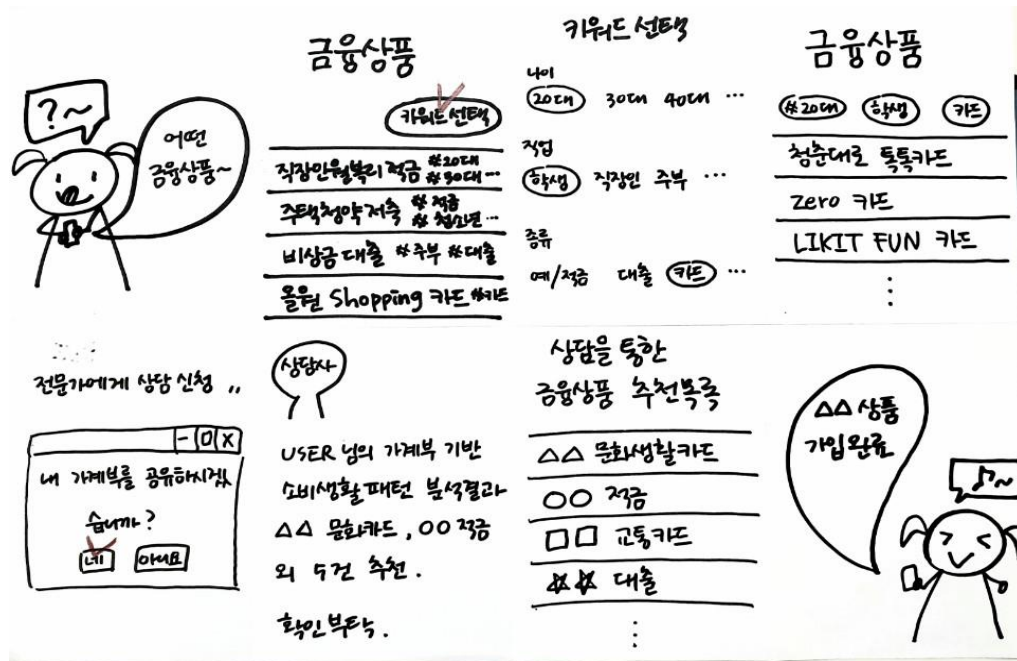 ?~
어떤
금융상품~
금융상품
키워드 선택
직장인월복리 적금 #20대 #30대...
주택청약저축 #적금 #청소년...
비상금대출 #주부 #대출
올원 Shopping 카드 #카드
키워드 선택
나이
20대 30대 40대 ...
직업
학생 직장인 주부 ...
종류
예/적금 대출 카드 ...
금융상품
#20대 학생 카드
청춘대로 톡톡카드
zero 카드
LIKIT FUN 카드
전문가에게 상담 신청 ,,
- □ X
내 가계부를 공유하시겠
습니까?
네 아니요
상담사
USER 님의 가계부 기반
소비생활패턴 분석결과
△△ 문화카드, ○○ 적금
외 5건 추천.
확인부탁.
상담을 통한
금융상품 추천목록
△△ 문화생활카드
○○ 적금
□□ 교통카드
☆☆ 대출
△△ 상품
가입완료
♪~